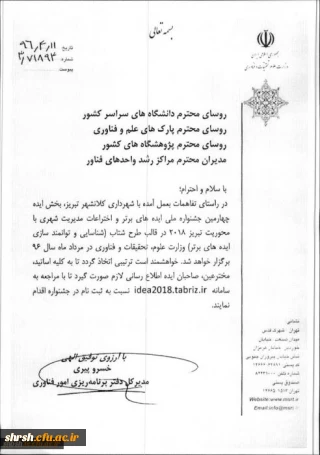 بسمه تعالی
جمهوری اسلامی ایران
وزارت علوم، تحقیقات و فناوری
تاریخ ۹۶/۴/۱۱
شماره ۳/۷۱۸۹۳
پیوست
روسای محترم دانشگاه های سراسر کشور
روسای محترم پارک های علم و فناوری
روسای محترم پژوهشگاه های کشور
مدیران محترم مراکز رشد واحدهای فناور
با سلام و احترام؛
در راستای تفاهمات بعمل آمده با شهرداری کلانشهر تبریز، بخش ایده
چهارمین جشنواره ملی ایده های برتر و اختراعات مدیریت شهری با
محوریت تبریز ۲۰۱۸ در قالب طرح شتاب (شناسایی و توانمند سازی
ایده های برتر) وزارت علوم، تحقیقات و فناوری در مرداد ماه سال ۹۶
برگزار خواهد شد. خواهشمند است ترتیبی اتخاذ گردد تا به کلیه اساتید،
مخترعین، صاحبان ایده اطلاع رسانی لازم صورت گیرد تا با مراجعه به
سامانه idea2018.tabriz.ir نسبت به ثبت نام در جشنواره اقدام
نمایند.
با آرزوی توفیق الهی
خسرو پیری
مدیر کل دفتر برنامه‌ریزی امور فناوری
نشانی
تهران شهرک قدس
میدان صنعت خیابان
خوردین خیابان هرمزان
نبش خیابان پیروزان جنوبی
صندوق پستی
Website:www.msrt.ir
shrsh.cfu.ac.ir